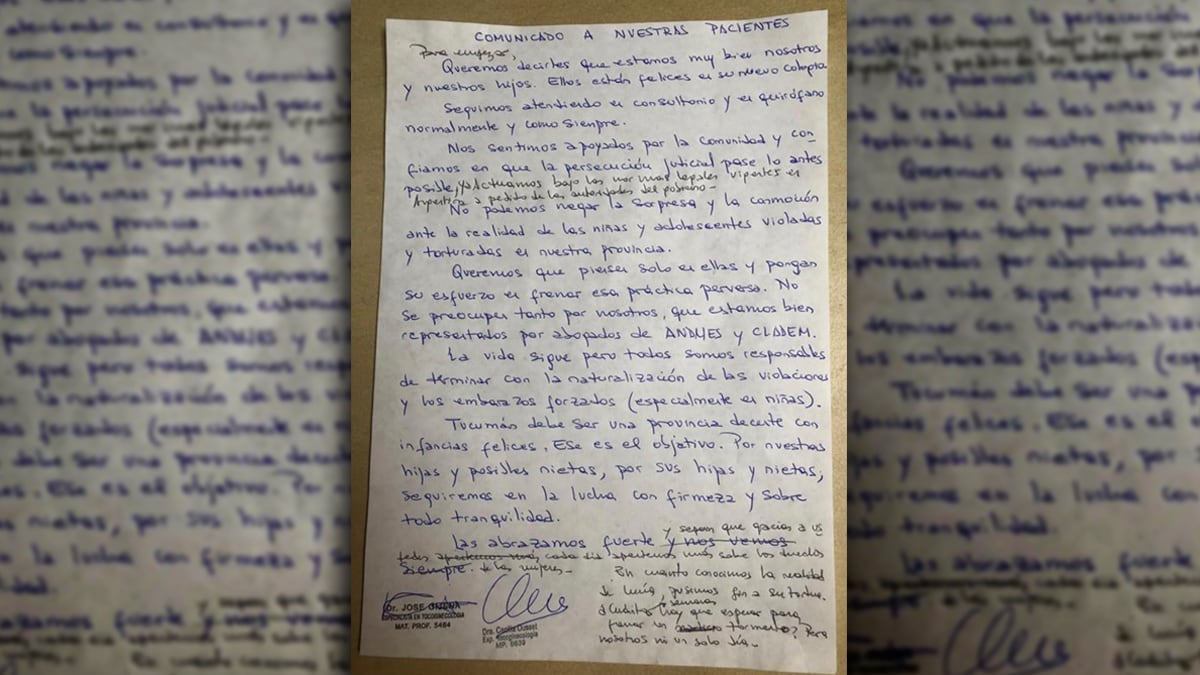 COMUNICADO A NUESTRAS PACIENTES
Para empezar,
Queremos decirles que estamos muy bien nosotros
y nuestros hijos. Ellos están felices en su nuevo colegio
Seguimos atendiendo en consultorio y en quirófano
normalmente y como siempre.
Nos sentimos apoyados por la comunidad y con-
fiamos en que la persecución judicial pase lo antes
posible, ya actuamos bajo las normas legales vigentes en
Argentina a pedido de las autoridades del
No podemos negar la sorpresa y la conmoción
ante la realidad de las niñas y adolescentes violadas
y torturadas en nuestra provincia.
Queremos que piensen solo en ellas y pongan
su esfuerzo en frenar esa práctica perversa. No
se preocupen tanto por nosotros, que estamos bien
representados por abogados de ANDHES y CLADEM.
La vida sigue pero todos somos responsables
de terminar con la naturalización de las violaciones
y los embarazos forzados (especialmente en niñas).
Tucumán debe ser una provincia decente con
infancias felices. Ese es el objetivo. Por nuestras
hijas y posibles nietas, por sus hijas y nietas,
seguiremos en la lucha con firmeza y sobre
todo tranquilidad.
y sepan que gracias a us
Las abrazamos fuerte y nos vemos
tedes cada día aprendemos más sobre los
siempre. de las mujeres-
En cuanto conocimos la realidad
de Lucía, pusimos fin a su tortura.
semanas
hay que esperar para
frenar un tormento? Para
nosotros ni un solo día-
Dr. JOSE GIGENA
ESPECIALISTA EN TOCOGINECOLOGIA
MAT. PROF. 5484
Dra. Cecilia Ousset
Esp. Tocoginecología
MP. 5639